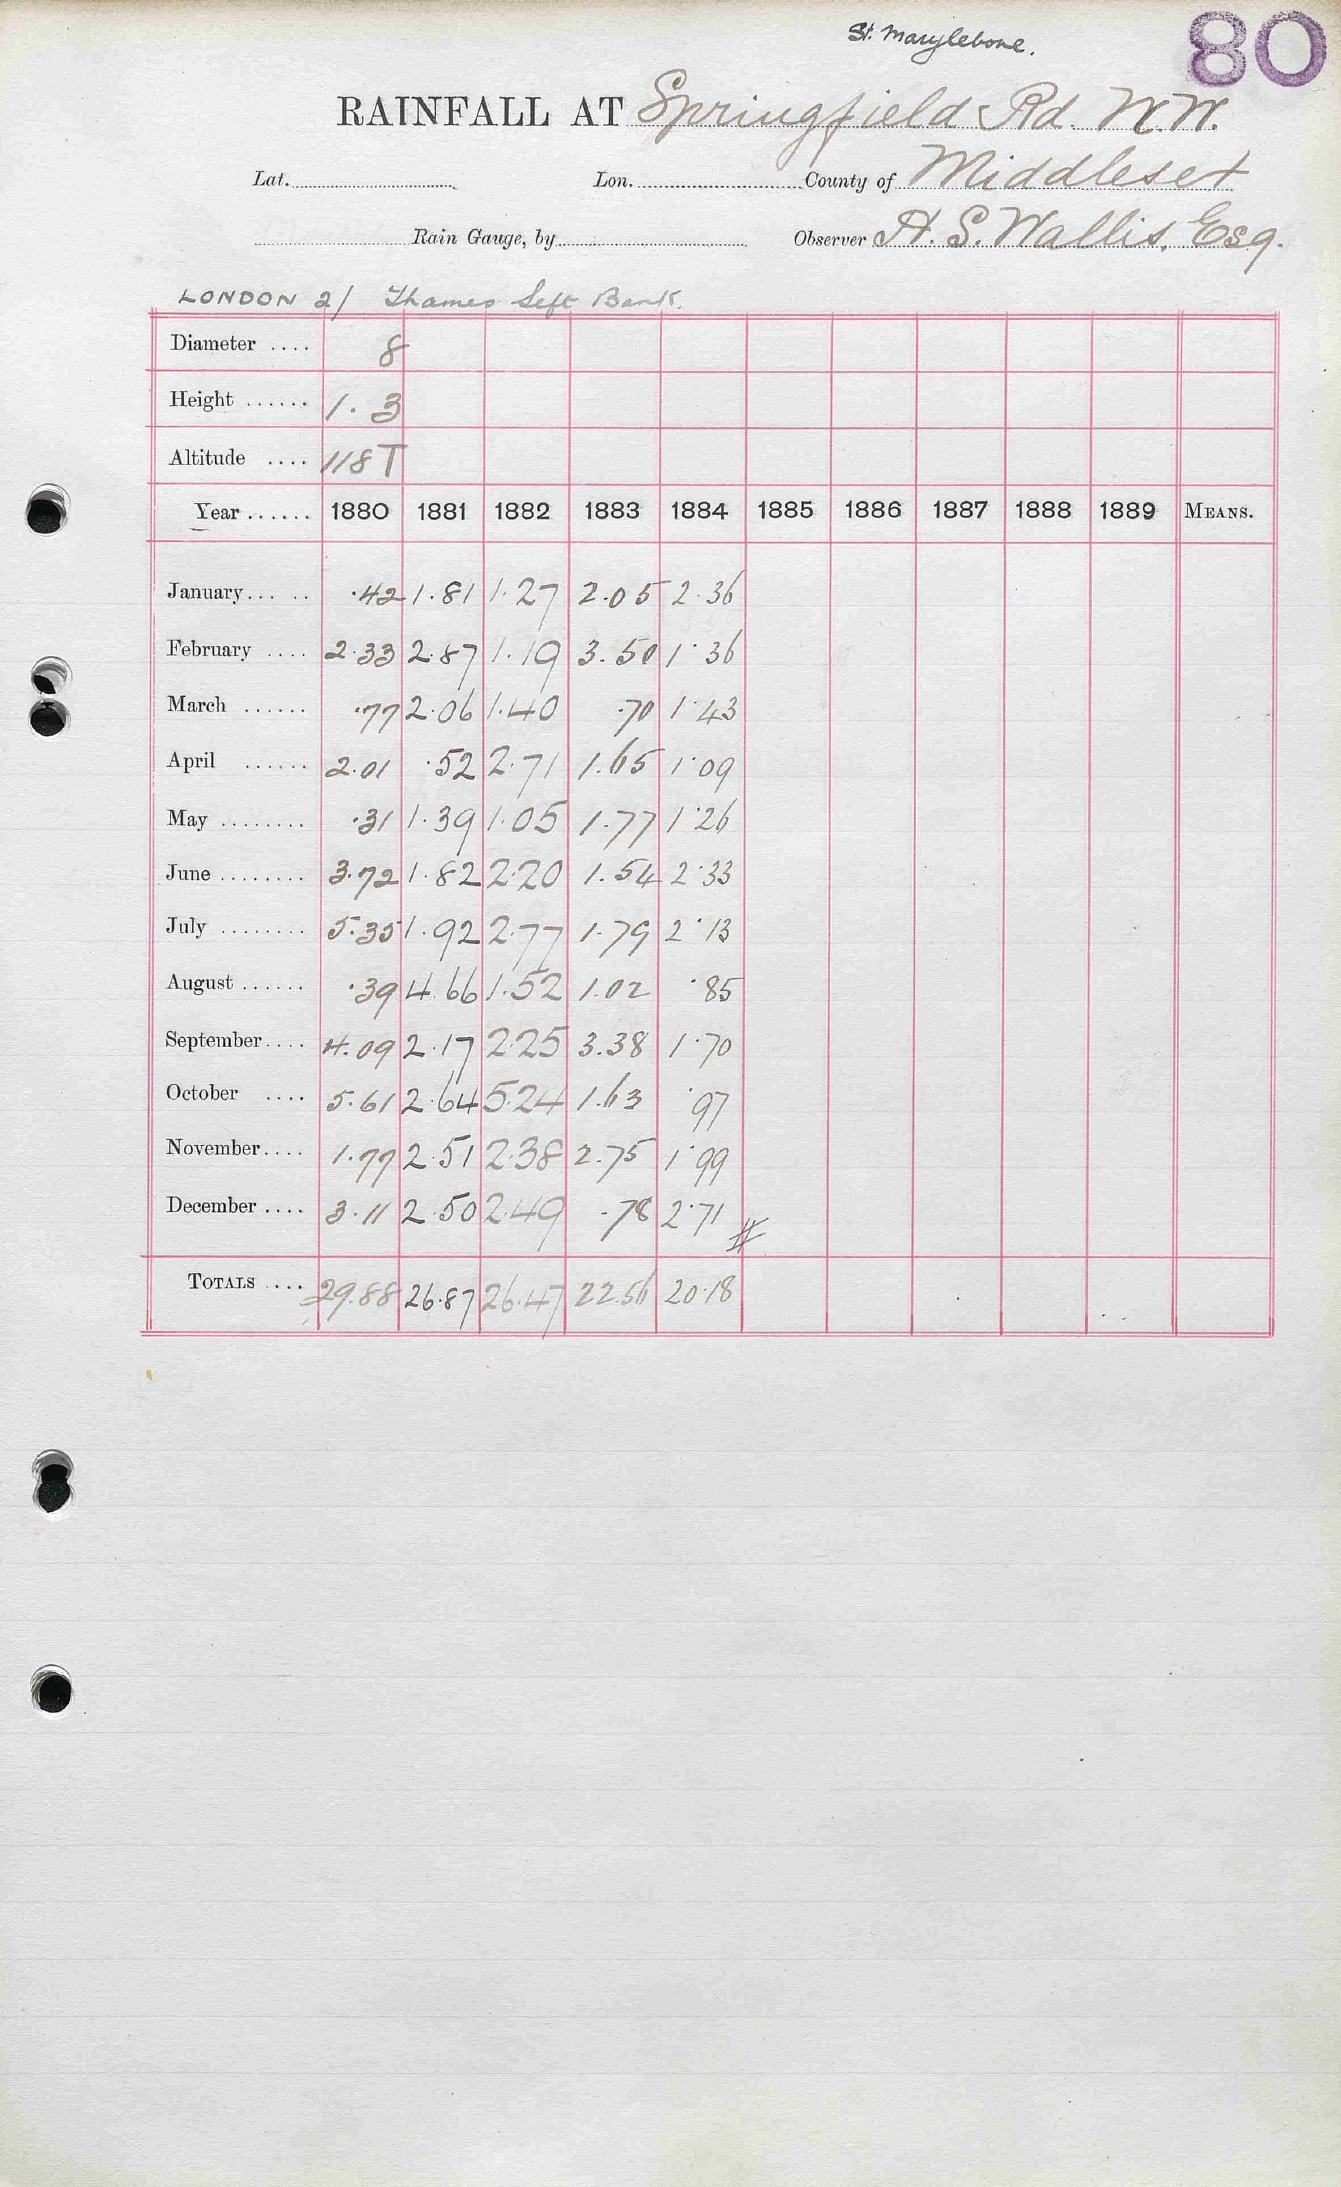 St. Marylebone.
80
RAINFALL AT Springfield Rd. N.W.
Lat. Lon. County of Middlesex
Rain Gauge, by Observer H. S. Wallis, Esq.
LONDON 2/ Thames Left Bank.
Diameter .... 8
Height ...... 1. 3
Altitude .... 118 T
Year ...... 1880 1881 1882 1883 1884 1885 1886 1887 1888 1889 MEANS.
January... .. .42 1.81 1.27 2.05 2.36
February .... 2.33 2.87 1.19 3.50 1.36
March ...... .77 2.06 1.40 .70 1.43
April ...... 2.01 .52 2.71 1.65 1.09
May ........ .31 1.39 1.05 1.77 1.26
June ........ 3.72 1.82 2.20 1.54 2.33
July ........ 5.35 1.92 2.77 1.79 2.13
August ...... .39 4.66 1.52 1.02 .85
September.... 4.09 2.17 2.25 3.38 1.70
October .... 5.61 2.64 5.24 1.63 .97
November.... 1.77 2.51 2.38 2.75 1.99
December .... 3.11 2.50 2.49 .78 2.71
TOTALS .... 29.88 26.87 26.47 22.56 20.18